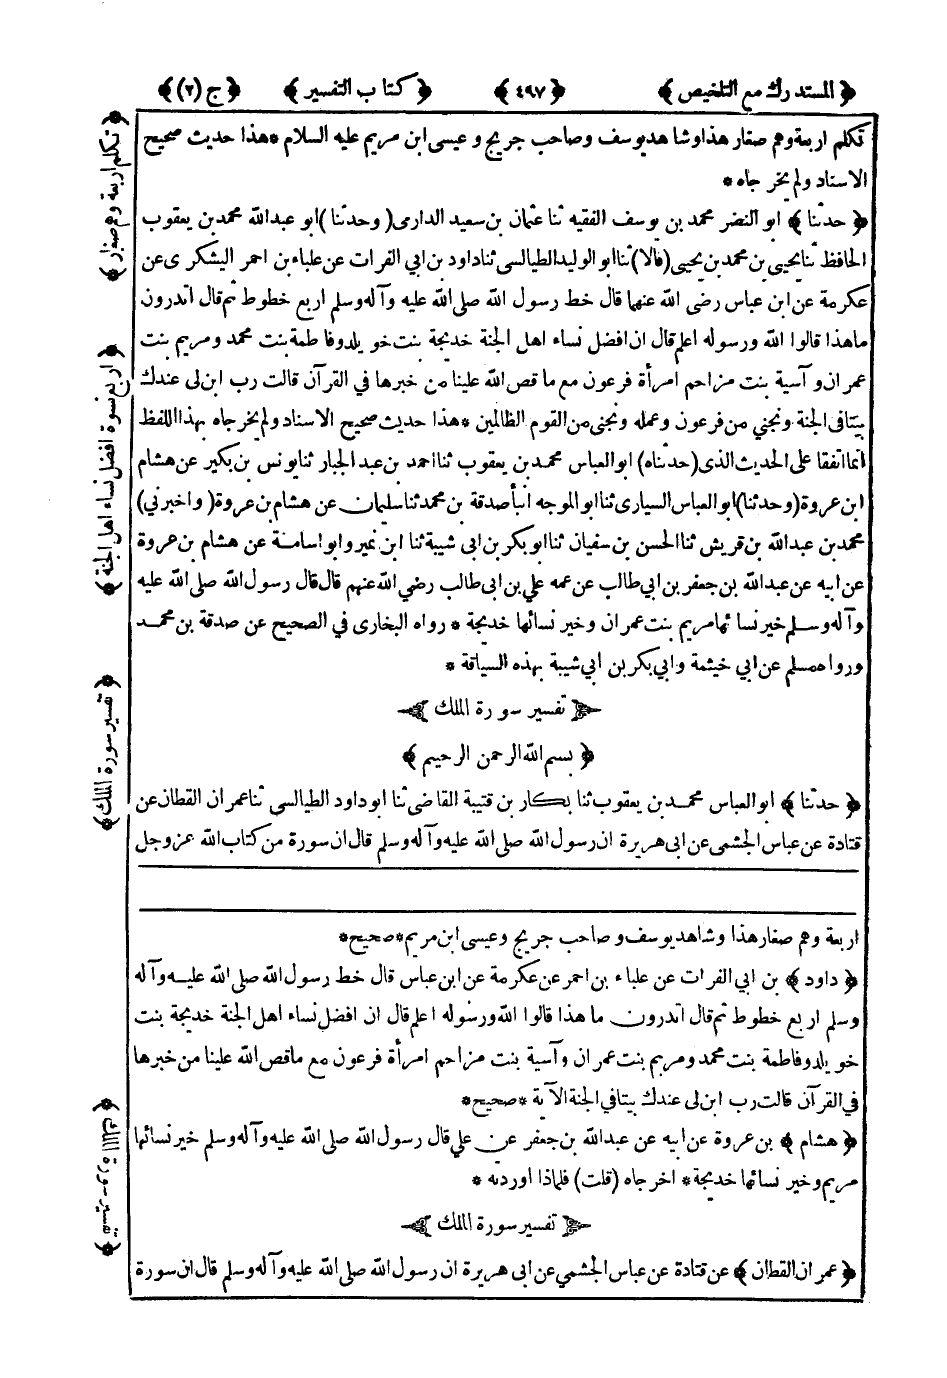 ﴿ المستدرك مع التلخيص ﴾ ﴿ ٤٩٧ ﴾ ﴿ كتاب التفسير ﴾ ﴿ ج (٢) ﴾
تكلم اربعة وهم صغار هذا وشاهد يوسف وصاحب جريج وعيسى ابن مريم عليه السلام * هذا حديث صحيح
الاسناد ولم يخرجاه *
﴿ حدثنا ﴾ ابو النضر محمد بن يوسف الفقيه ثنا عثمان بن سعيد الدارمى ( وحدثنا ) ابو عبد الله محمد بن يعقوب
الحافظ ثنا يحيى بن محمد بن يحيى (قالا) ثنا ابو الوليد الطيالسى ثنا داود بن ابي الفرات عن علباء بن احمر اليشكرى عن
عكرمة عن ابن عباس رضى الله عنهما قال خط رسول الله صلى الله عليه وآله وسلم اربع خطوط ثم قال اتدرون
ماهذا قالوا الله ورسوله اعلم قال ان افضل نساء اهل الجنة خديجة بنت خويلد وفاطمة بنت محمد ومريم بنت
عمران وآسية بنت مزاحم امرأة فرعون مع ما قص الله علينا من خبرها في القرآن قالت رب ابن لى عندك
بيتا فى الجنة ونجني من فرعون وعمله ونجنى من القوم الظالمين * هذا حديث صحيح الاسناد ولم يخرجاه بهذا اللفظ
انما اتفقا على الحديث الذى (حدثناه) ابو العباس محمد بن يعقوب ثنا احمد بن عبد الجبار ثنا يونس بن بكير عن هشام
ابن عروة (وحدثنا) ابو العباس السيارى ثنا ابو الموجه انبأ صدقة بن محمد ثنا سليمان عن هشام بن عروة ( واخبرني )
محمد بن عبد الله بن قريش ثنا الحسن بن سفيان ثنا ابو بكر بن ابى شيبة ثنا ابن نمير وابو اسامة عن هشام بن عروة
عن ابيه عن عبد الله بن جعفر بن ابي طالب عن عمه علي بن ابى طالب رضي الله عنهم قال قال رسول الله صلى الله عليه
وآله وسلم خير نسائها مريم بنت عمران وخير نسائها خديجة * رواه البخارى في الصحيح عن صدقة بن محمد
ورواه مسلم عن ابي خيثمة وابي بكر بن ابي شيبة بهذه السياقة *
تفسير سورة الملك
﴿ بسم الله الرحمن الرحيم ﴾
﴿ حدثنا ﴾ ابو العباس محمد بن يعقوب ثنا بكار بن قتيبة القاضي ثنا ابو داود الطيالسى ثنا عمران القطان عن
قتادة عن عباس الجشمى عن ابى هريرة ان رسول الله صلى الله عليه وآله وسلم قال ان سورة من كتاب الله عز وجل
اربعة وهم صغار هذا وشاهد يوسف وصاحب جريج وعيسى ابن مريم * صحيح *
﴿ داود ﴾ بن ابي الفرات عن علباء بن احمر عن عكرمة عن ابن عباس قال خط رسول الله صلى الله عليه وآله
وسلم اربع خطوط ثم قال اتدرون ما هذا قالوا الله ورسوله اعلم قال ان افضل نساء اهل الجنة خديجة بنت
خويلد وفاطمة بنت محمد ومريم بنت عمران وآسية بنت مزاحم امرأة فرعون مع ماقص الله علينا من خبرها
في القرآن قالت رب ابن لى عندك بيتا في الجنة الآية * صحيح *
﴿ هشام ﴾ بن عروة عن ابيه عن عبد الله بن جعفر عن علي قال رسول الله صلى الله عليه وآله وسلم خير نسائها
مريم وخير نسائها خديجة * اخرجاه (قلت) فلماذا اوردته *
تفسير سورة الملك
﴿ عمران القطان ﴾ عن قتادة عن عباس الجشمي عن ابى هريرة ان رسول الله صلى الله عليه وآله وسلم قال ان سورة
﴿ تكلم اربعة وهم صغار ﴾
﴿ اربع نسوة افضل نساء اهل الجنة ﴾
﴿ تفسير سورة الملك ﴾
﴿ تفسير سورة الملك ﴾